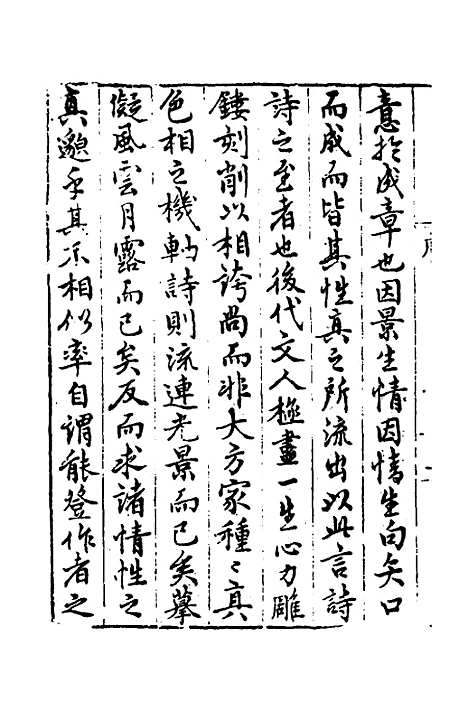 意於成章也因景生情因情生句矢口
而成而皆其性真之所流出以此言詩
詩之至者也後代文人極盡一生心力雕
鏤刻削以相誇尚而非大方家種〻真
色相之機軸詩則流連光景而已矣摹
儗風雲月露而已矣反而求諸情性之
真邈乎其不相似率自謂能登作者之
序